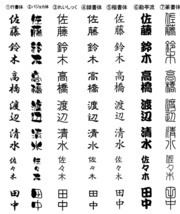 ①行書体 ②パジャカ体 ③れいしっく ④隷書体 ⑤楷書体 ⑥勘亭流 ⑦篆書体
佐藤 佐藤 佐藤 佐藤 佐藤 佐藤 佐藤
鈴木 鈴木 鈴木 鈴木 鈴木 鈴木 鈴木
高橋 高橋 高橋 高橋 高橋 高橋 高橋
渡辺 渡辺 渡辺 渡辺 渡辺 渡辺 渡辺
清水 清水 清水 清水 清水 清水 清水
佐々木 佐々木 佐々木 佐々木 佐々木 佐々木 佐々木
田中 田中 田中 田中 田中 田中 田中